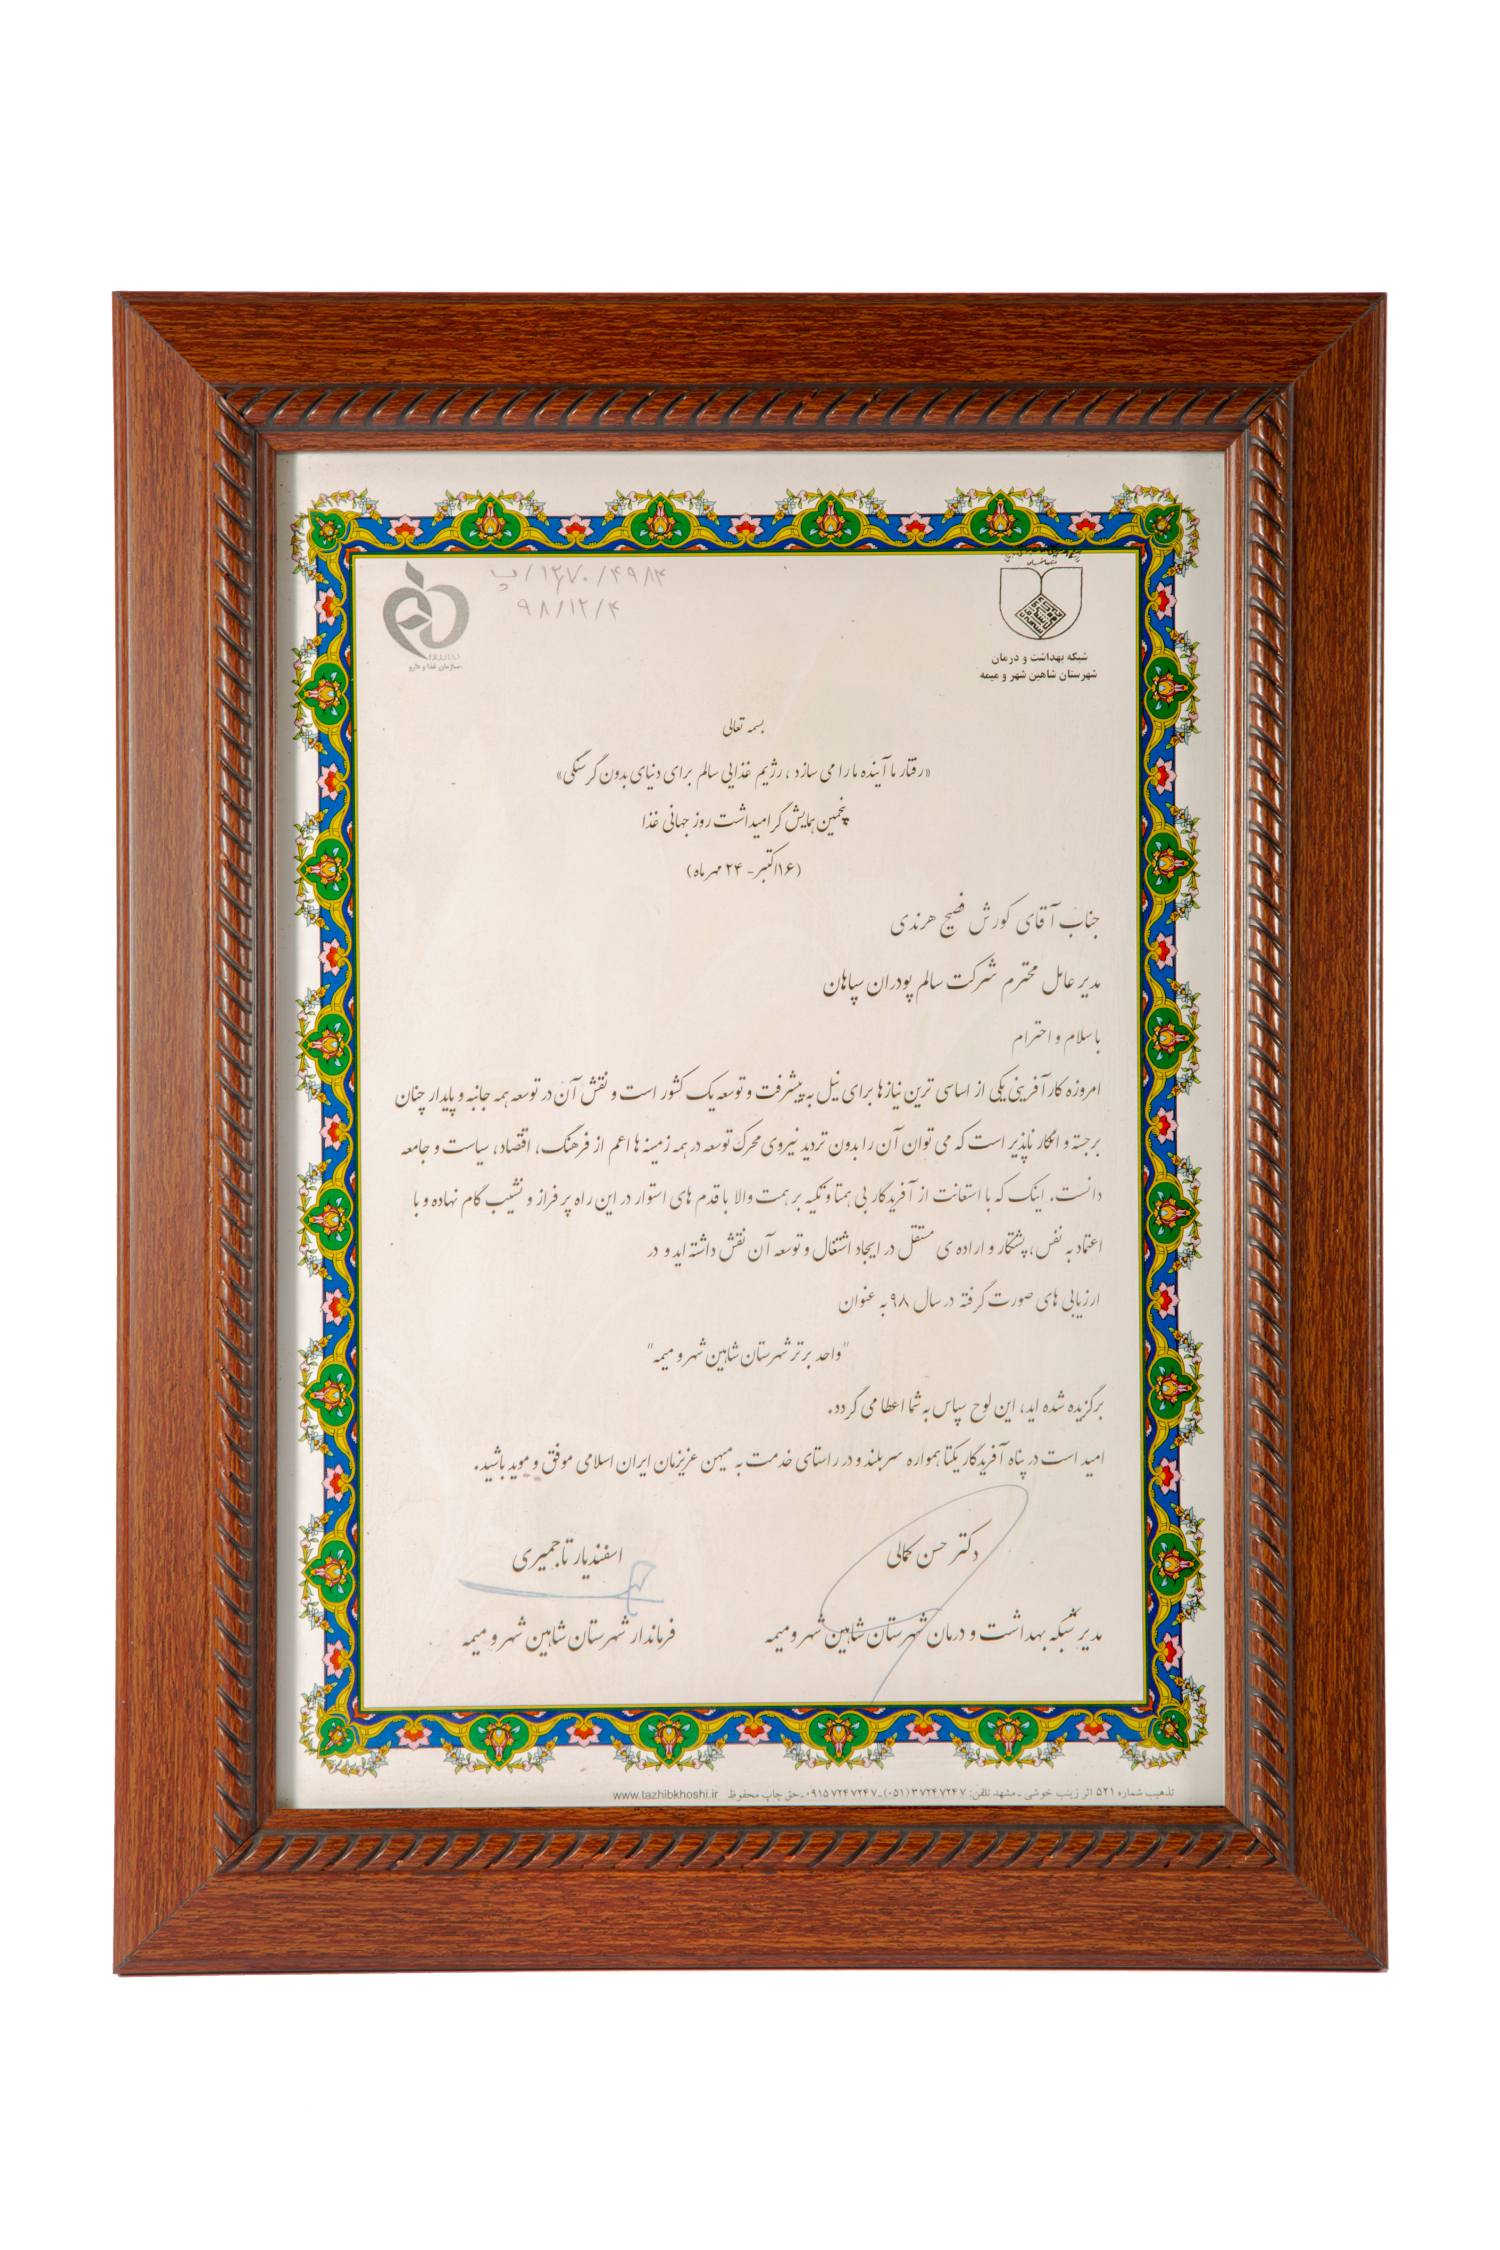 ۴۹۸۴/۱۲۷۰/پ
۹۸/۱۲/۴
سازمان غذا و دارو
شبکه بهداشت و درمان
شهرستان شاهین شهر و میمه
بسمه تعالی
«رفتار ما آینده ما را می سازد ، رژیم غذایی سالم برای دنیای بدون گرسنگی»
پنجمین همایش گرامیداشت روز جهانی غذا
(۱۶اکتبر - ۲۴ مهر ماه)
جناب آقای کورش فصیح هرندی
مدیر عامل محترم شرکت سالم پودران سپاهان
با سلام و احترام
امروزه کارآفرینی یکی از اساسی ترین نیازها برای نیل به پیشرفت و توسعه یک کشور است و نقش آن در توسعه همه جانبه و پایدار چنان
برجسته و انکار ناپذیر است که می توان آن را بدون تردید نیروی محرک توسعه در همه زمینه ها اعم از فرهنگ، اقتصاد، سیاست و جامعه
دانست. اینک که با استعانت از آفریدگار بی همتا و تکیه بر همت والا با قدم های استوار در این راه پر فراز و نشیب گام نهاده و با
اعتماد به نفس، پشتکار و اراده ی مستقل در ایجاد اشتغال و توسعه آن نقش داشته اید و در
ارزیابی های صورت گرفته در سال ۹۸ به عنوان
"واحد برتر شهرستان شاهین شهر و میمه"
برگزیده شده اید، این لوح سپاس به شما اعطا می گردد.
امید است در پناه آفریدگار یکتا همواره سربلند و در راستای خدمت به میهن عزیزمان ایران اسلامی موفق و موید باشید.
دکتر حسن کمالی
اسفندیار تاجمیری
مدیر شبکه بهداشت و درمان شهرستان شاهین شهر و میمه
فرماندار شهرستان شاهین شهر و میمه
تذهیب شماره ۵۲۱ اثر زینب خوشی - مشهد تلفن: ۳۷۲۴۷۲۴۷ (۰۵۱) - ۰۹۱۵۷۲۴۷۲۴۷ - حق چاپ محفوظ www.tazhibkhoshi.ir